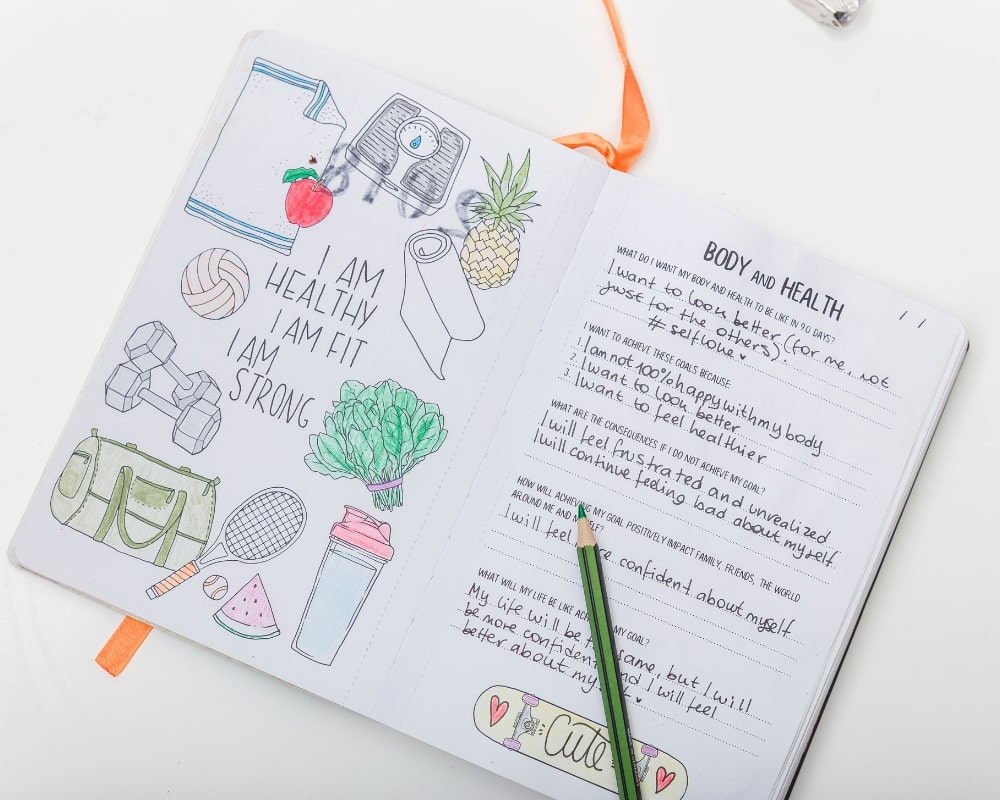 I AM
HEALTHY
I AM FIT
I AM
STRONG
BODY AND HEALTH
WHAT DO I WANT MY BODY AND HEALTH TO BE LIKE IN 90 DAYS?
I want to look better (for me, not
just for the others)!
# selflove ♥
I WANT TO ACHIEVE THESE GOALS BECAUSE:
1. I am not 100% happy with my body
2. I want to look better
3. I want to feel healthier
WHAT ARE THE CONSEQUENCES IF I DO NOT ACHIEVE MY GOAL?
I will feel frustrated and unrealized
I will continue feeling bad about myself.
HOW WILL ACHIEVING MY GOAL POSITIVELY IMPACT FAMILY, FRIENDS, THE WORLD
AROUND ME AND MYSELF?
I will feel more confident about myself
WHAT WILL MY LIFE BE LIKE MY GOAL?
My life will be the same, but I will
be more confident and I will feel
better about my ♥
Cute